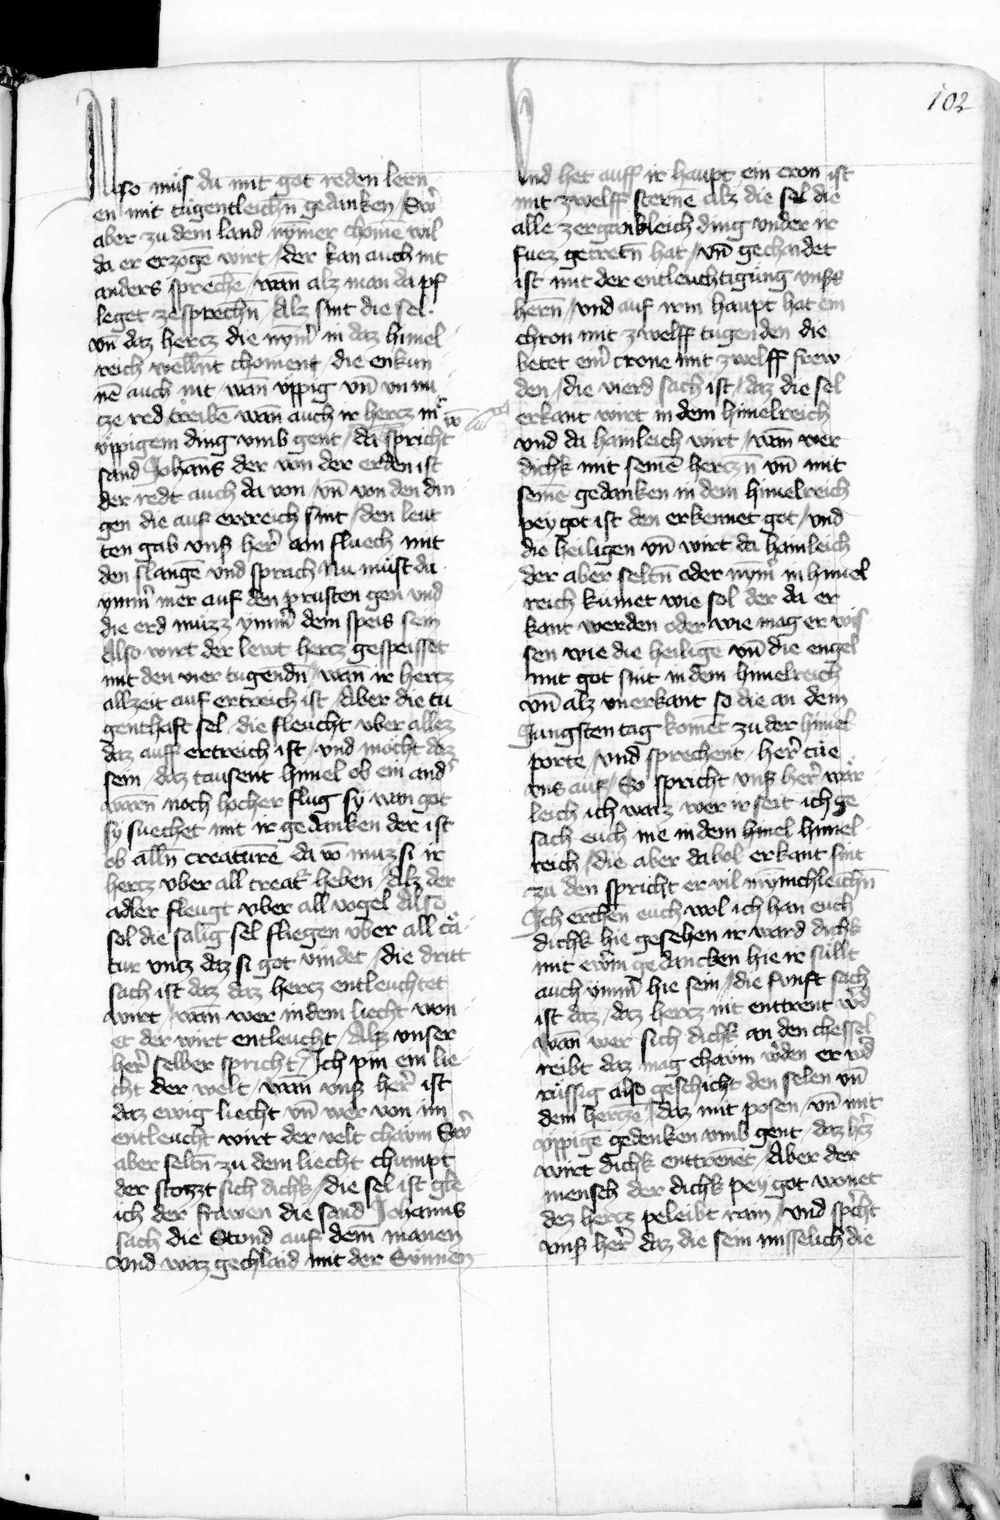 102
Also muͤs du mit got reden lern
en mit tugentleichn̄ gedanken Sw̄
aber zu dem land nymer chome wil
da er erzogē wirt / der kan auch nit
anders sprechē / wan̄ alz man da pf
leget zesprechn̄ / Alz sint die sel
vn̄ daz hercz die nym̄ in daz himel
reich wellnt choment / die enkun
nē auch nit / wan vppig vn̄ vnnu
cze red treiben wan̄ auch ir hercz mͤ
vppigem ding vmb gent / da spricht
sand Johans der von der erden ist
der redt auch da von / vn̄ von den din
gen die auf ertreich sint / den leut
ten gab vnß her̄ am fluech mit
den slangē vnd sprach nu muͤst du
ymm̄ mer auf den prusten gen vnd
die erd muzz ymm̄ dem speis sein
Also wirt der lewt hercz gespeisset
mit den vier tugendn̄ / wan̄ ir hercz
allzeit auf ertreich ist / Aber die tu
genthaft sel / die fleucht vber allez
daz auff ertreich ist / vnd mocht daz
sein / daz tausent himel ob ein and̄
warn noch hocher flug sy wan got
sy suechet mit ir gedanken der ist
ob alln̄ creaturē da vō muz si ir
hercz vber all creat̄ heben / Alz der
adler fleugt vber all vogel Also
sol die salig sel fliegen vber all cͤa
tur vntz daz si got vindet / die dritt
sach ist daz daz hercz entleuchtet
wirt / wan̄ wer in dem liecht won
et der wirt entleucht / Alz vnser
her̄ selber spricht / Ich pin ein lie
cht der welt / wan̄ vnß her̄ ist
daz ewig liecht vn̄ wer von im
entleucht wirt der velt chaum Sw̄
aber seltn̄ zu dem liecht chumpt
der stozzt sich dichk / die sel ist gle
ich der frawen die sand Johanns
sach die stund auf dem manen
vnd waz gechlaid mit der Sunnen
Vnd het auff ir haupt ein cron ist
mit zwelff sternē Alz die sel die
alle zergankleich ding vnder ir
fuez getretn̄ hat / vn̄ gechendet
ist mit der entleuchtigung vnsß
hern̄ / vnd auf irm haupt hat ein
chron mit zwelff tugenden die
betet em̄ crone mit zwelff frew
den / die vierd sach ist / daz die sel
erkant wirt in dem himelreich
vnd da hamleich wirt / wan̄ wer
dichk mit seinē herczn̄ vn̄ mit
seinē gedanken in dem himelreich
pey got ist den erkennet got / vnd
die heiligen vn̄ wirt da hamleich
der aber seltn̄ oder nym̄ in himel
reich kumet wie sol der da er
kant werden oder wie mag er wis
sen wie die heiligē vn̄ die engel
mit got sint in dem himelreich
vn̄ alz vnerkant so die an dem
Jungsten tag komēt zu der himel
porte / vnd sprechent / her̄ tue
vns auf / So spricht vnß her̄ waͤr
leich ich waiz wer ir seit ich ge
sach euch nie in dem himel himel
reich / die aber da wol erkant sint
zu den spricht er vil mynnchleichn̄
Ich erchen euch wol ich han euch
dichk hie gesehen ir ward dichk
mit ewrm gedancken hie ir sullt
auch ymm̄ hie sein / die funft sach
ist daz / daz hercz nit enttrent w̄d
wan̄ wer sich dichk an den chessel
reibt daz mag chaum w̄den er w̄d
russig also geschicht den selen vn̄
dem hercze / daz mit posen / vn̄ mit
vppigē gedenken vmb gent / daz hcz
wirt dichk enttrenet / Aber der
mensch der dichk pey got wonet
dez hercz peleibt rain / vnd sp̄cht
vnß her̄ daz die sein misselich die